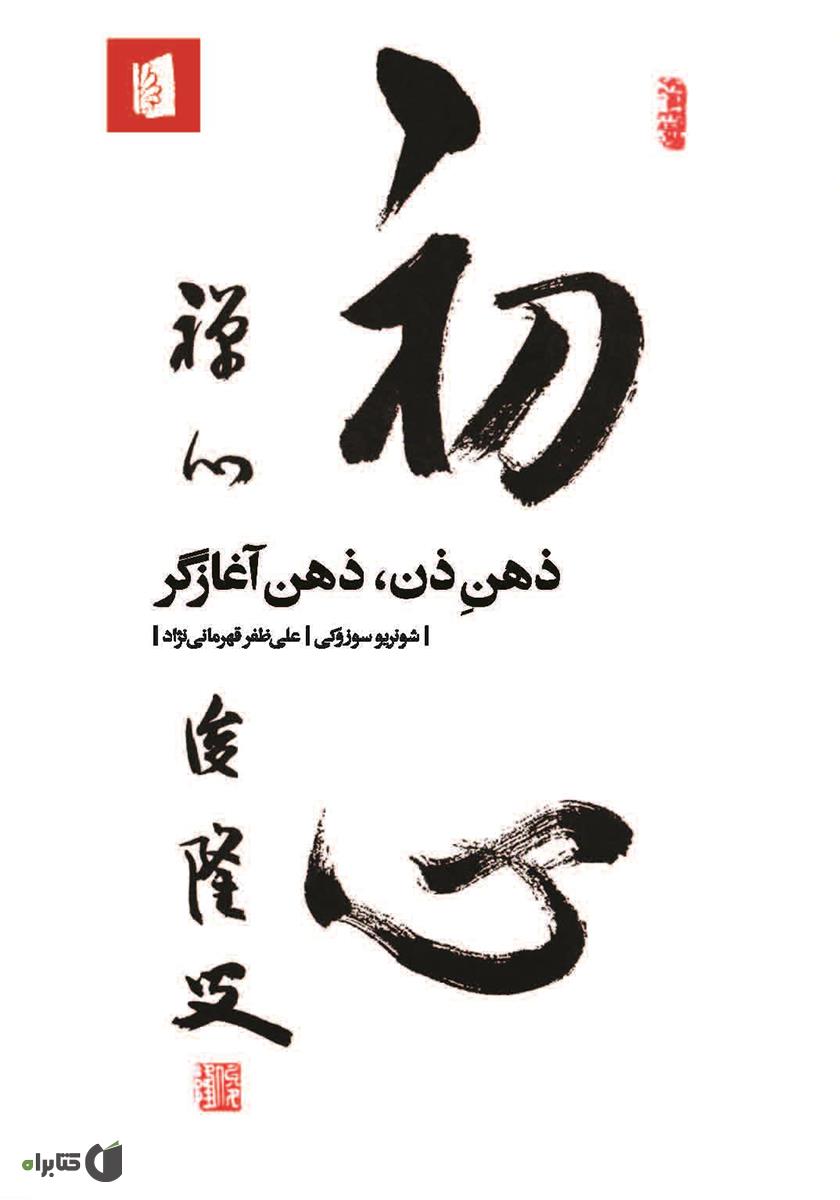 初心
禅心
ذهنِ ذن، ذهن آغازگر
| شونریو سوزوکی | علی‌ظفر قهرمانی‌نژاد |
俊隆叟
کتابراه